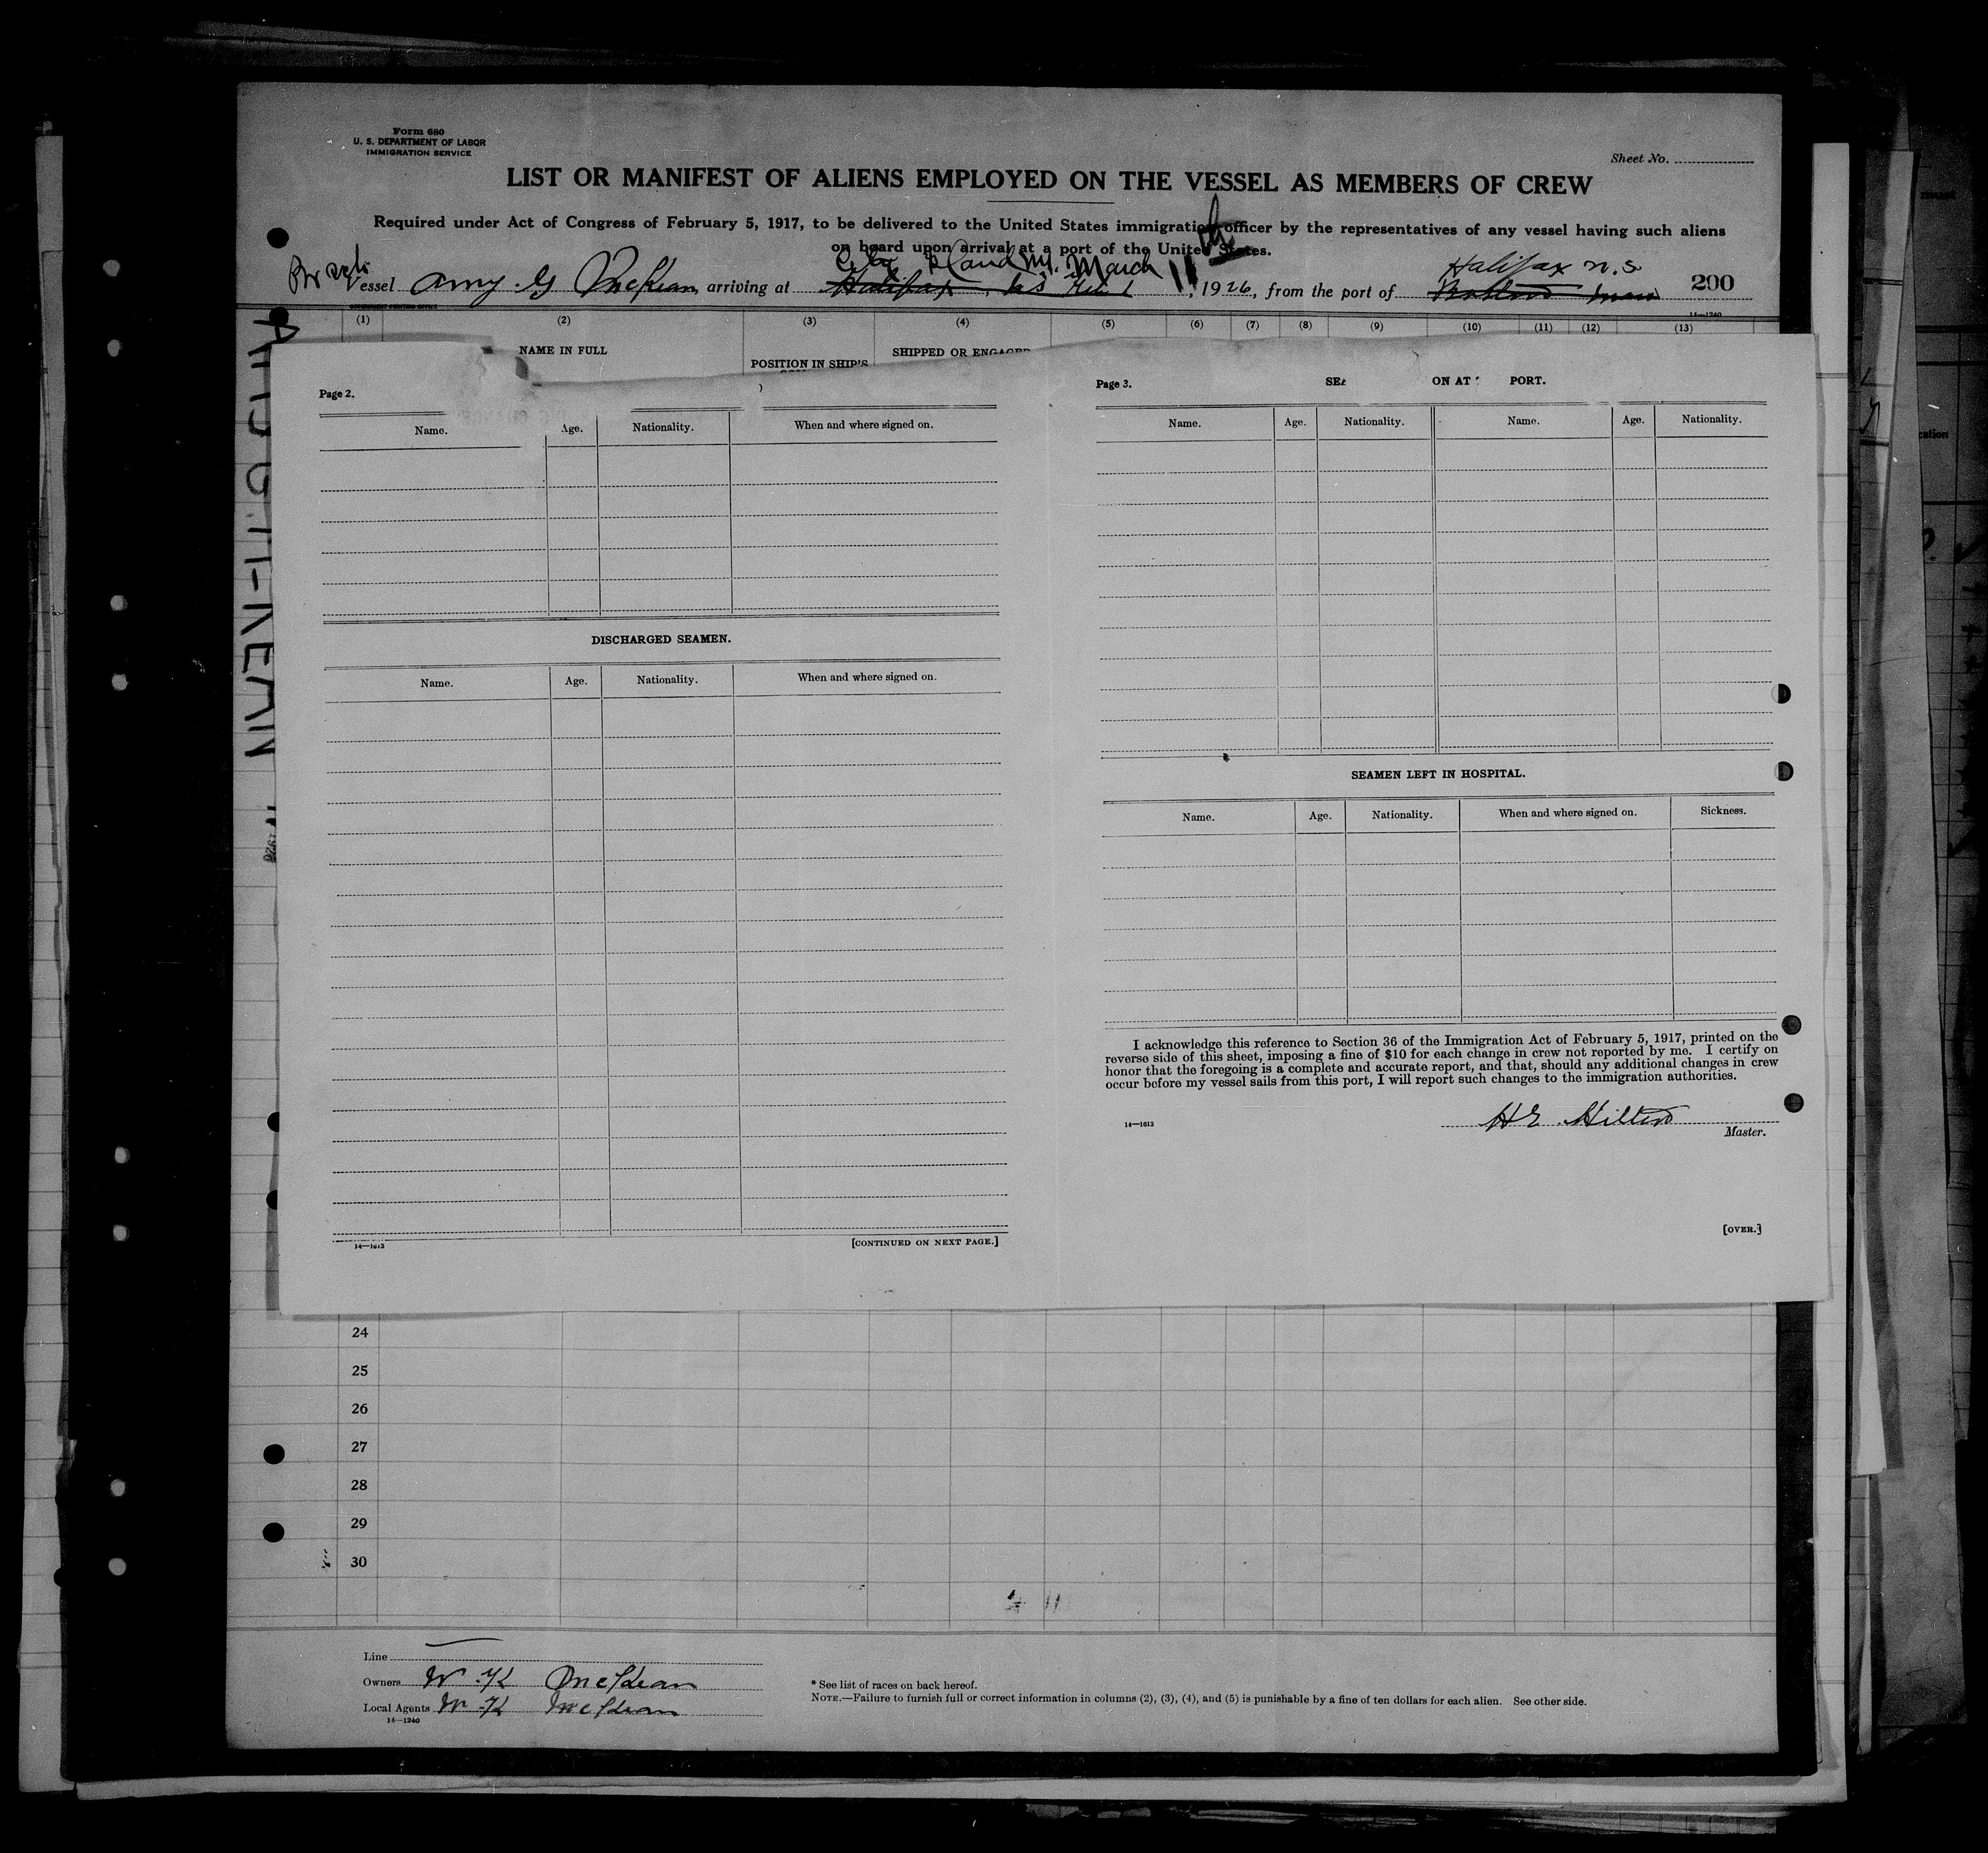 Form 680
U. S. DEPARTMENT OF LABOR
IMMIGRATION SERVICE
Sheet No.
LIST OR MANIFEST OF ALIENS EMPLOYED ON THE VESSEL AS MEMBERS OF CREW
Required under Act of Congress of February 5, 1917, to be delivered to the United States immigration officer by the representatives of any vessel having such aliens
on board upon arrival at a port of the United States.
City Island NY. March 11th Halifax N.S.
Vessel Amy G McKean, arriving at Halifax, 1926, from the port of 290
(1) (2) (3) (4) (5) (6) (7) (8) (9) (10) (11) (12) (13)
14—1240
NAME IN FULL
POSITION IN SHIP'S
SHIPPED OR ENGAGED
Page 2.
Name. Age. Nationality. When and where signed on.
DISCHARGED SEAMEN.
Name. Age. Nationality. When and where signed on.
14—1613
[CONTINUED ON NEXT PAGE.]
Page 3.
ON AT PORT.
Name. Age. Nationality. Name. Age. Nationality.
SEAMEN LEFT IN HOSPITAL.
Name. Age. Nationality. When and where signed on. Sickness.
I acknowledge this reference to Section 36 of the Immigration Act of February 5, 1917, printed on the
reverse side of this sheet, imposing a fine of $10 for each change in crew not reported by me. I certify on
honor that the foregoing is a complete and accurate report, and that, should any additional changes in crew
occur before my vessel sails from this port, I will report such changes to the immigration authorities.
14—1613
H E Hilton
Master.
[OVER.]
24
25
26
27
28
29
30
Line
Owners W. K McKean
Local Agents W K McKean
14—1240
* See list of races on back hereof.
NOTE.—Failure to furnish full or correct information in columns (2), (3), (4), and (5) is punishable by a fine of ten dollars for each alien. See other side.